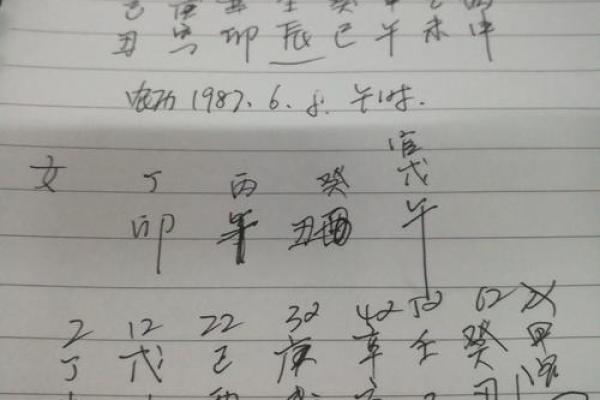 己 庚 辛 壬 癸 甲 乙 丙
丑 寅 卯 辰 巳 午 未 申
农历 1987.6.8. 午时.
官
女 丁 丙 癸 戊
卯 午 丑 酉 午
2 12 22 32 42 52 62
丁 戊 己 庚 辛 壬 癸 甲